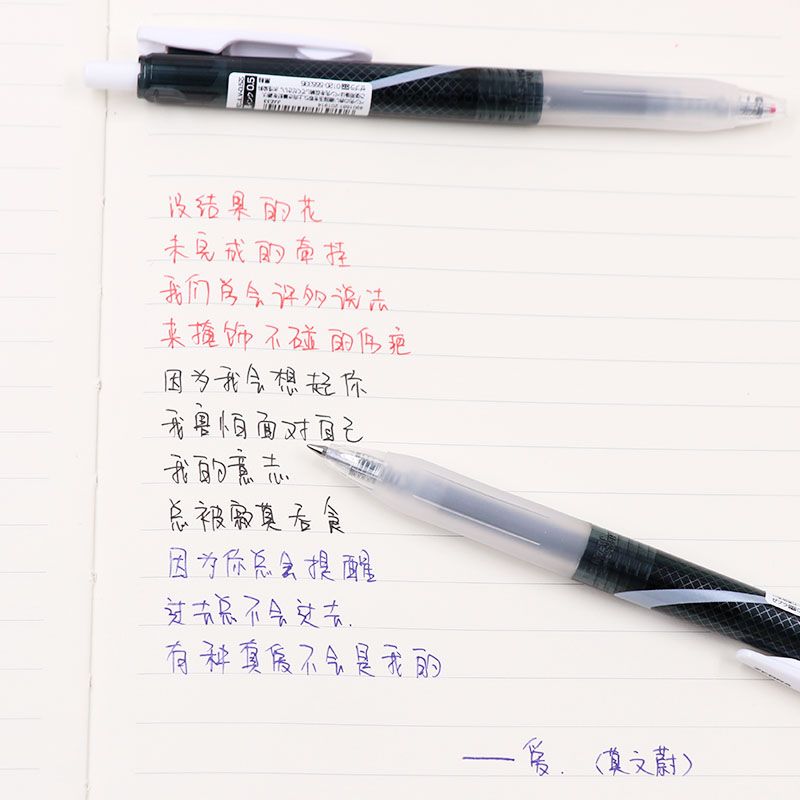 0.5
没结果的花
未完成的牵挂
我们学会许多说法
来掩饰不碰的伤疤
因为我会想起你
我害怕面对自己
我的意志
总被寂寞吞食
因为你总会提醒
过去总不会过去.
有种真爱不会是我的
——爱.(莫文蔚)